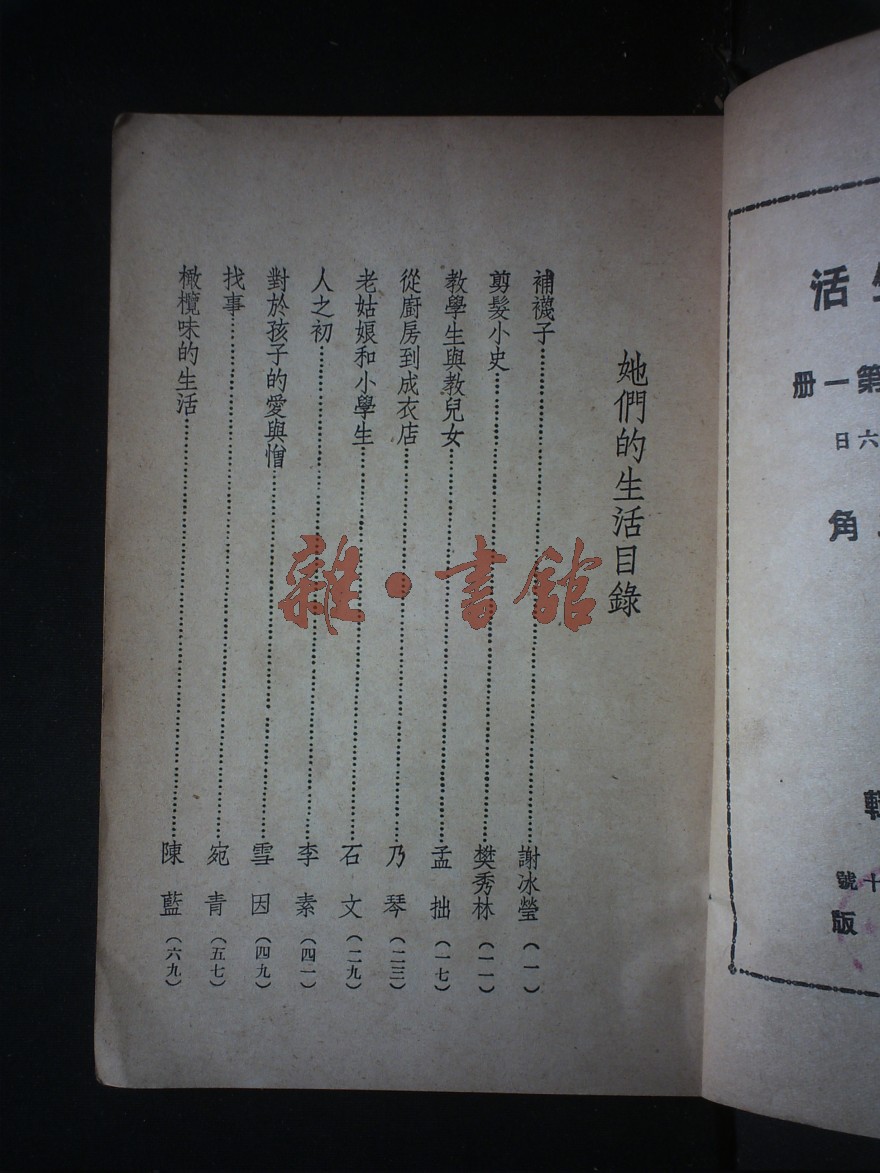 她們的生活目錄
補襪子…………謝冰瑩(一)
剪髮小史…………樊秀林(一一)
教學生與教兒女…………孟拙(一七)
從廚房到成衣店…………乃琴(二三)
老姑娘和小學生…………石文(二九)
人之初…………李素(四一)
對於孩子的愛與憎…………雪因(四九)
找事…………宛青(五七)
橄欖味的生活…………陳藍(六九)
雜·書館
生活
第一册
六日
角
十號
版